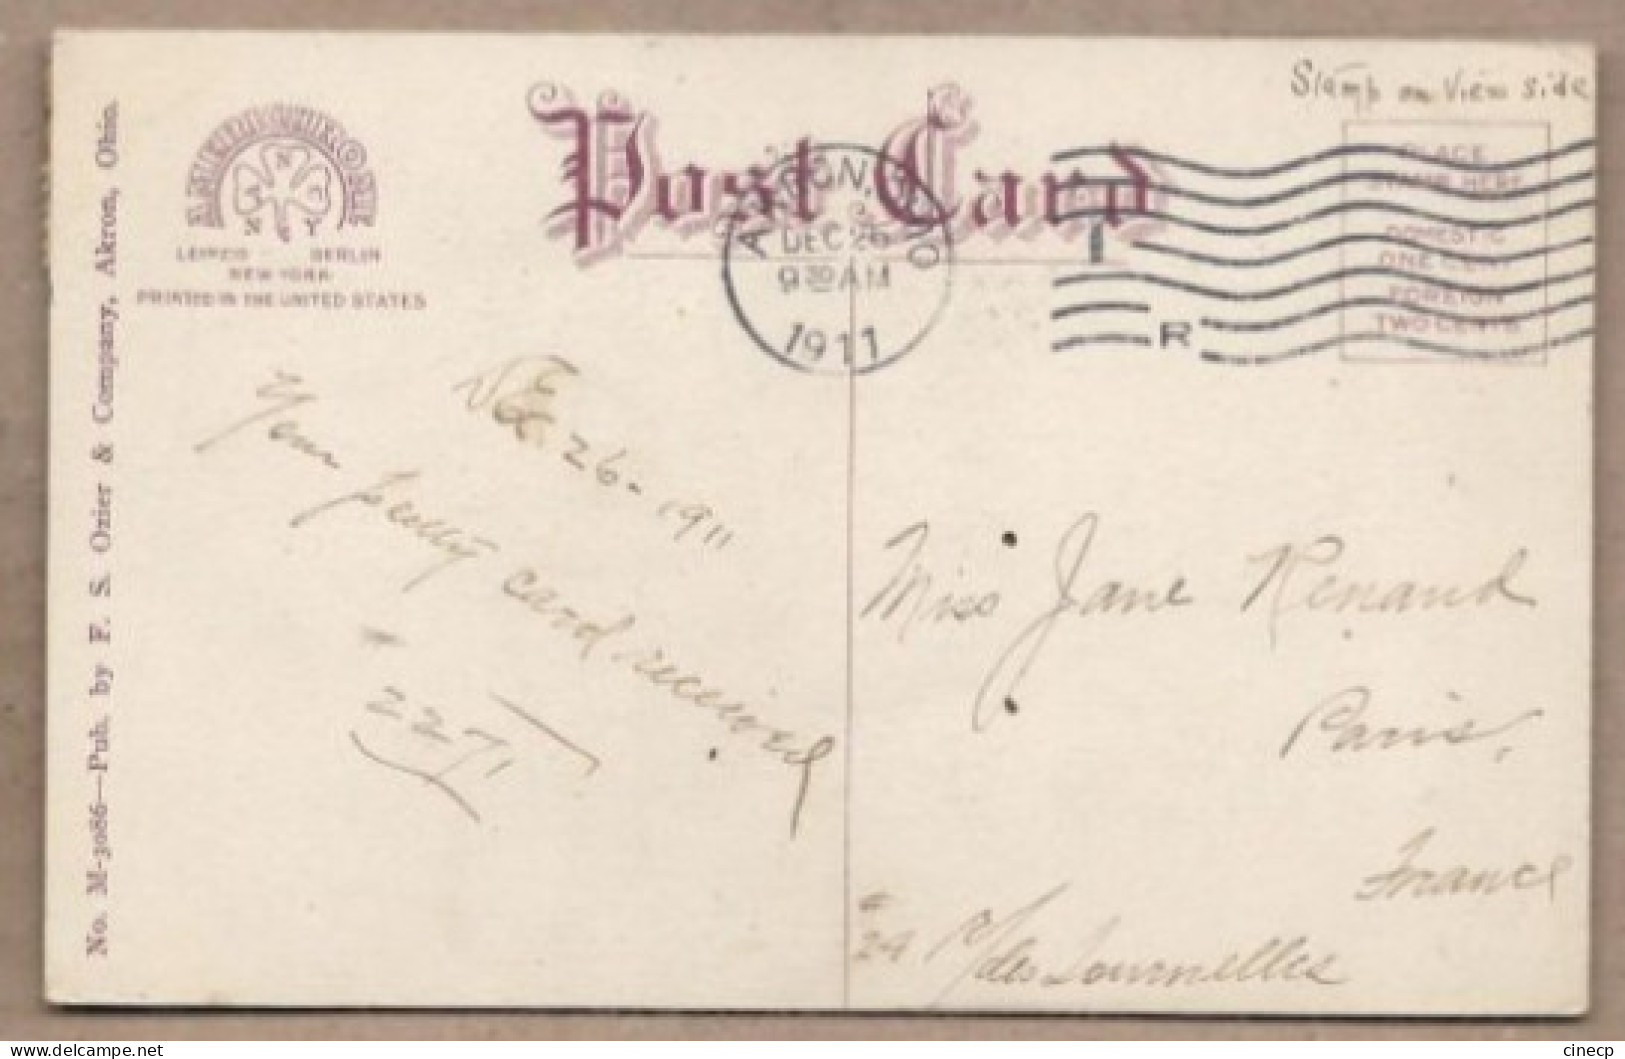 Stamp on View side
AMERICHROME
Post Card
AKRON, O
DEC 26
9 30 AM
1911
R
PLACE
STAMP HERE
DOMESTIC
ONE CENT
FOREIGN
TWO CENTS
LEIPZIG BERLIN
NEW YORK
PRINTED IN THE UNITED STATES
No. M-3086—Pub. by F. S. Ozier & Company, Akron, Ohio.
26-1911
Your pretty card received
#
2271
Miss Jane Renaud
Paris,
France
#
24 R/des Tournelles
cinecp